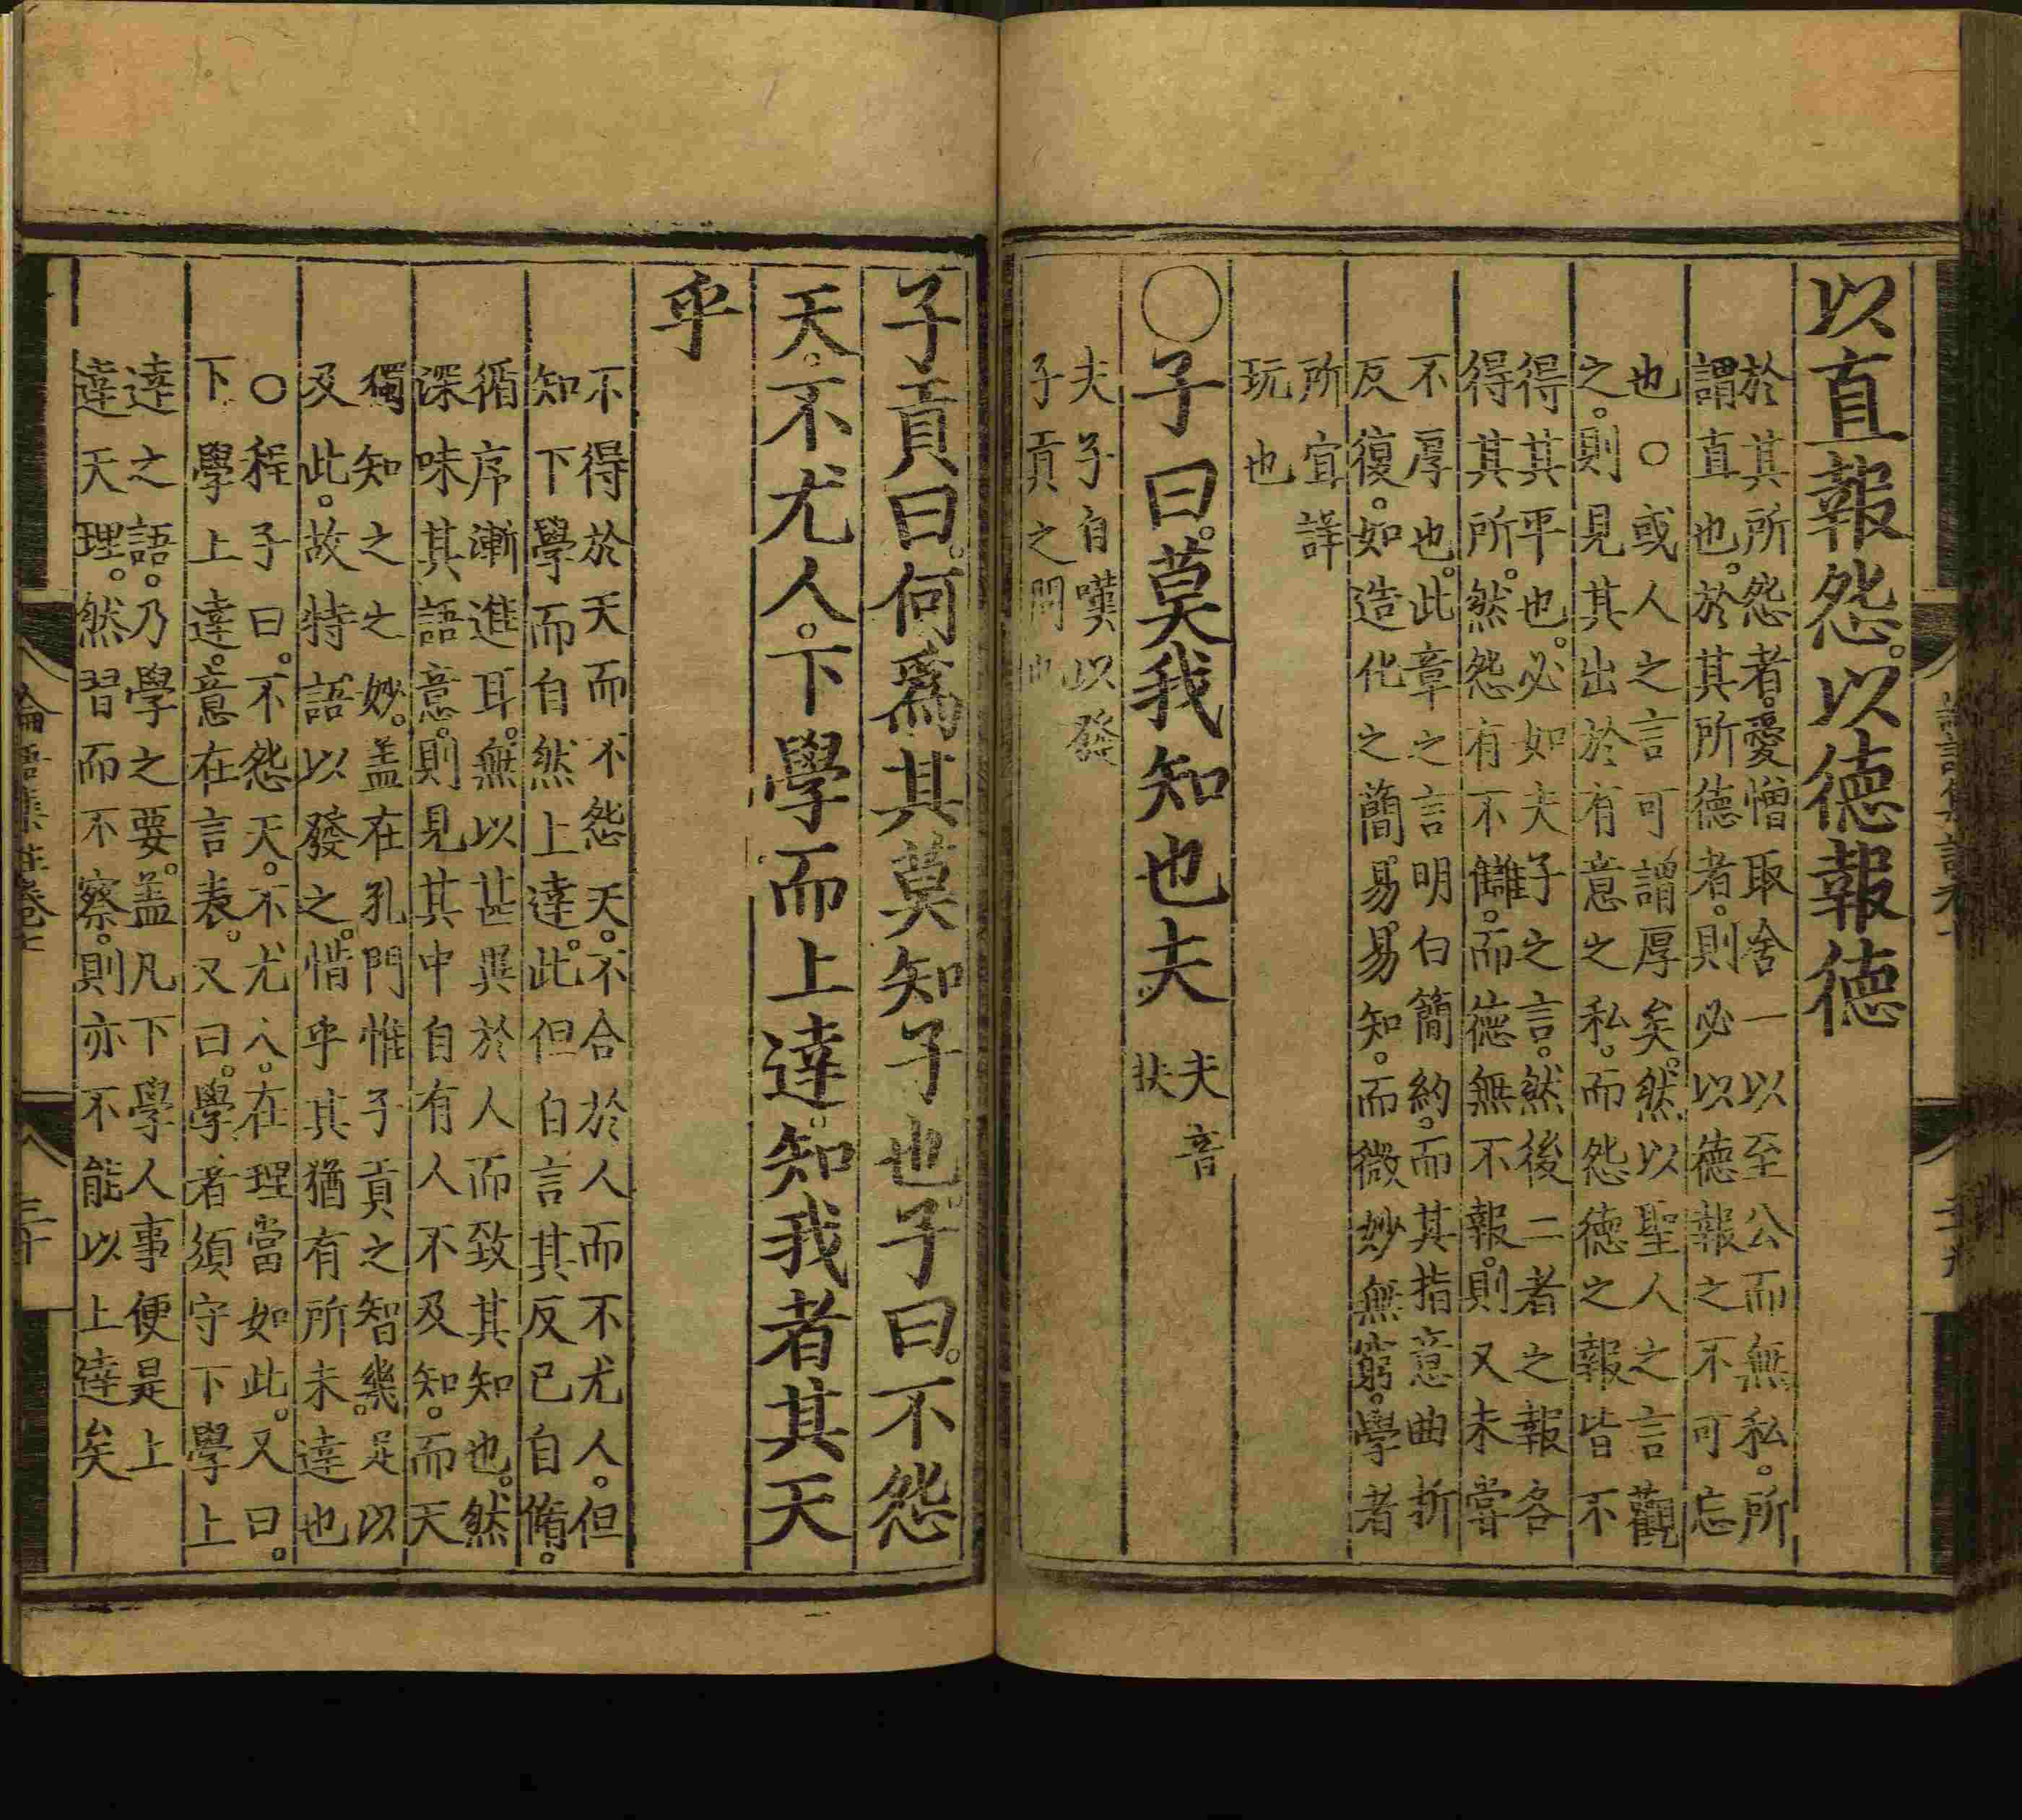 以直報怨。以德報德
於其所怨者。愛憎取舍一以至公而無私。所
謂直也。於其所德者。則必以德報之不可忘
也○或人之言可謂厚矣。然以聖人之言觀
之。則見其出於有意之私。而怨德之報皆不
得其平也。必如夫子之言。然後二者之報各
得其所。然怨有不讎。而德無不報。則又未嘗
不厚也。此章之言明白簡約。而其指意曲折
反復。如造化之簡易。易知。而微妙無窮。學者
所宜詳
玩也
○子曰。莫我知也夫
夫音
扶
夫子自嘆以發
子貢之問也
子貢曰。何爲其莫知子也。子曰。不怨
天。不尤人。下學而上達。知我者其天
乎
不得於天而不怨天。不合於人而不尤人。但
知下學而自然上達。此但自言其反己自脩。
循序漸進耳。無以甚異於人而致其知也。然
深味其語意。則見其中自有人不及知。而天
獨知之之妙。盖在孔門惟子貢之智幾。足以
及此。故特語以發之。惜乎其猶有所未達也
○程子曰。不怨天。不尤人。在理當如此。又曰。
下學上達。意在言表。又曰。學者須守下學上
達之語。乃學之要。盖凡下學人事便是上
達天理。然習而不察。則亦不能以上達矣